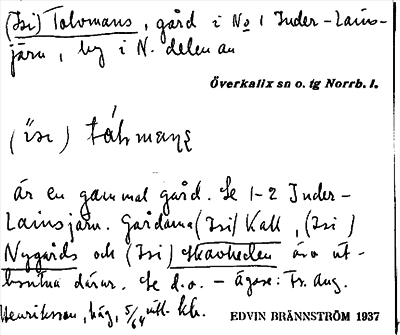 (Isi) Tolvmans, gård i No 1 Inder-Lains-
järn, by i N. delen av
Överkalix sn o. tg Norrb. l.
(isi)
är en gammal gård. Se 1-2 Inder-
Lainsjärn. Gårdarna (Isi) Kall, (Isi)
Nygårds och (Isi) Skavheden äro ut-
brutna därur. Se d.o. – ägare: Fr. Aug.
Henriksson, häg, 5/64 mtl. kr.
EDVIN BRÄNNSTRÖM 1937